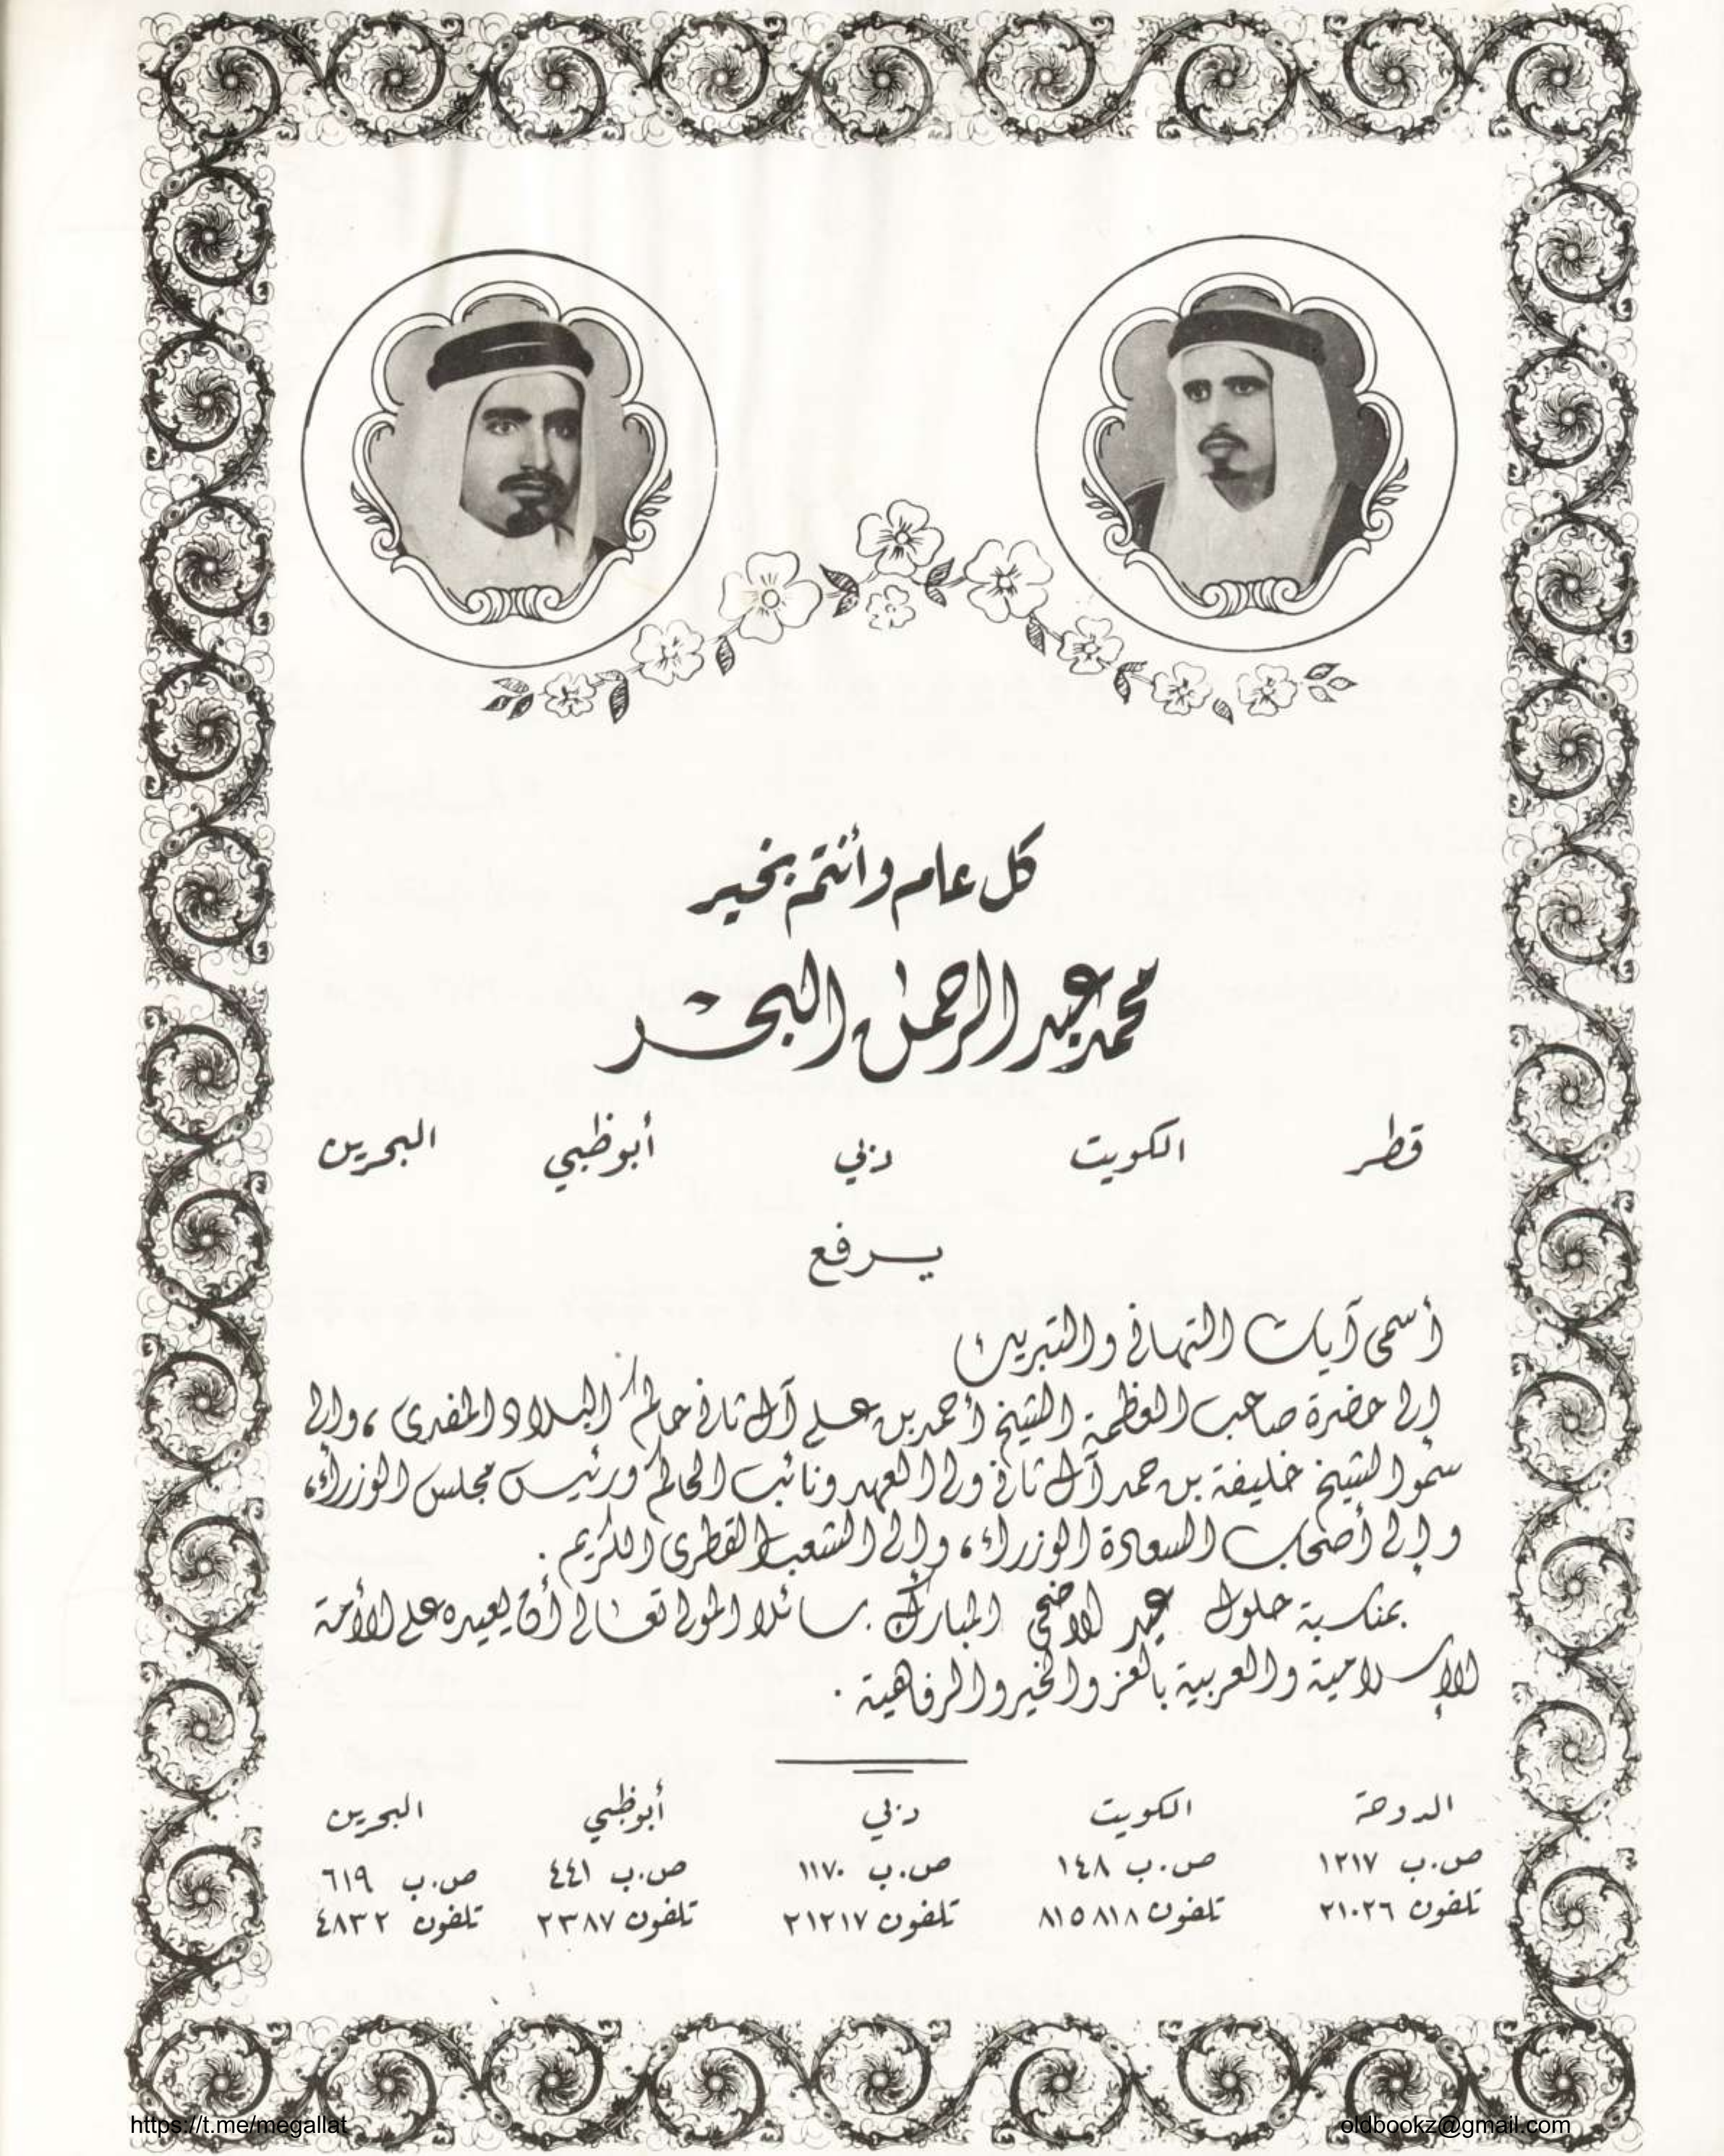 كل عام وأنتم بخير
محمد عبد الرحمن البحر
قطر الكويت دبي أبوظبي البحرين
يرفع
أسمى آيات التهاني والتبريك
إلى حضرة صاحب العظمة الشيخ أحمد بن علي آل ثاني حاكم البلاد المفدى ، وإلى
سمو الشيخ خليفة بن حمد آل ثاني ولي العهد ونائب الحاكم ورئيس مجلس الوزراء ،
وإلى أصحاب السعادة الوزراء ، وإلى الشعب القطري الكريم .
بمناسبة حلول عيد الاضحى المبارك . سائلا المولى تعالى أن يعيده على الأمة
الإسلامية والعربية بالعز والخير والرفاهية .
الدوحة الكويت دبي أبوظبي البحرين
ص.ب ١٢١٧ ص.ب ١٤٨ ص.ب ١١٧٠ ص.ب ٤٤١ ص.ب ٦١٩
تلفون ٢١٠٢٦ تلفون ٨١٥٨١٨ تلفون ٢١٢١٧ تلفون ٢٣٨٧ تلفون ٤٨٣٢
https://t.me/megallat oldbookz@gmail.com